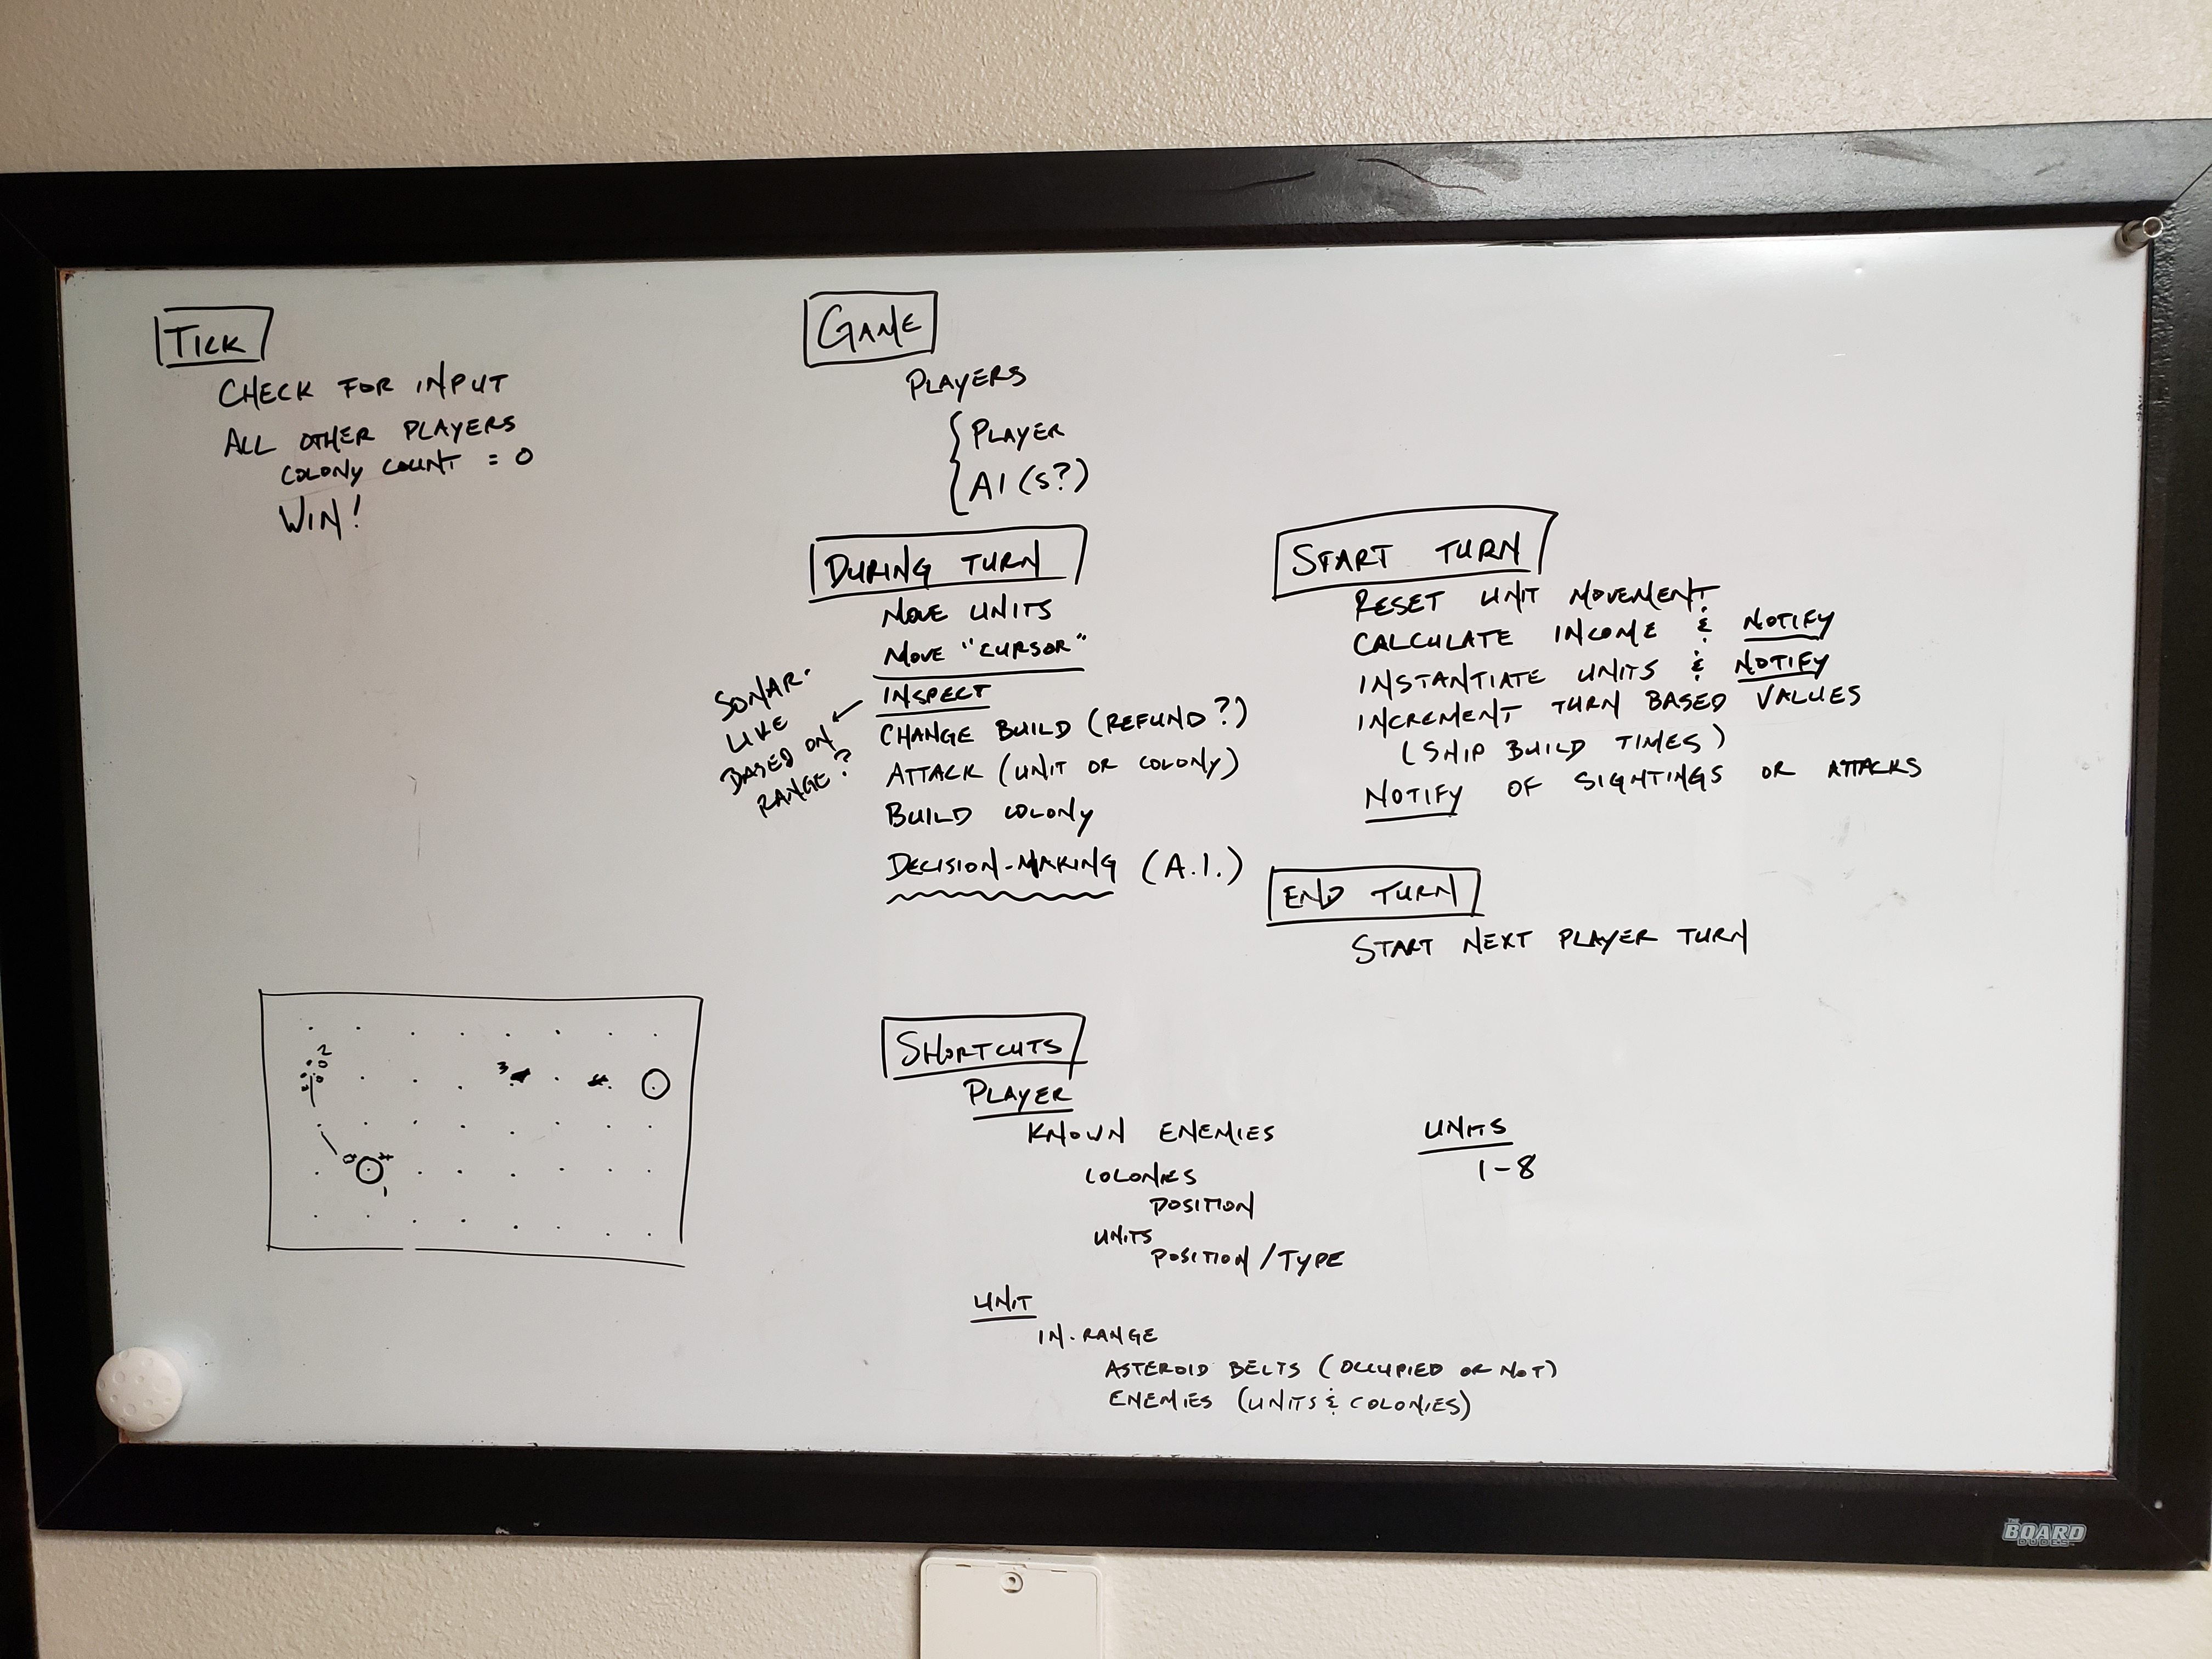 TICK
CHECK FOR INPUT
ALL OTHER PLAYERS
COLONY COUNT = 0
WIN!
GAME
PLAYERS
PLAYER
AI (S?)
DURING TURN
MOVE UNITS
MOVE "CURSOR"
INSPECT
CHANGE BUILD (REFUND?)
ATTACK (UNIT OR COLONY)
BUILD COLONY
DECISION-MAKING (A.I.)
SONAR-
LIKE
BASED ON
RANGE?
START TURN
RESET UNIT MOVEMENT
CALCULATE INCOME & NOTIFY
INSTANTIATE UNITS & NOTIFY
INCREMENT TURN BASED VALUES
(SHIP BUILD TIMES)
NOTIFY OF SIGHTINGS OR ATTACKS
END TURN
START NEXT PLAYER TURN
2
3
1
SHORTCUTS
PLAYER
KNOWN ENEMIES
COLONIES
POSITION
UNITS
POSITION/TYPE
UNIT
IN-RANGE
ASTEROID BELTS (OCCUPIED OR NOT)
ENEMIES (UNITS & COLONIES)
UNITS
1-8
THE
BOARD
DUDES